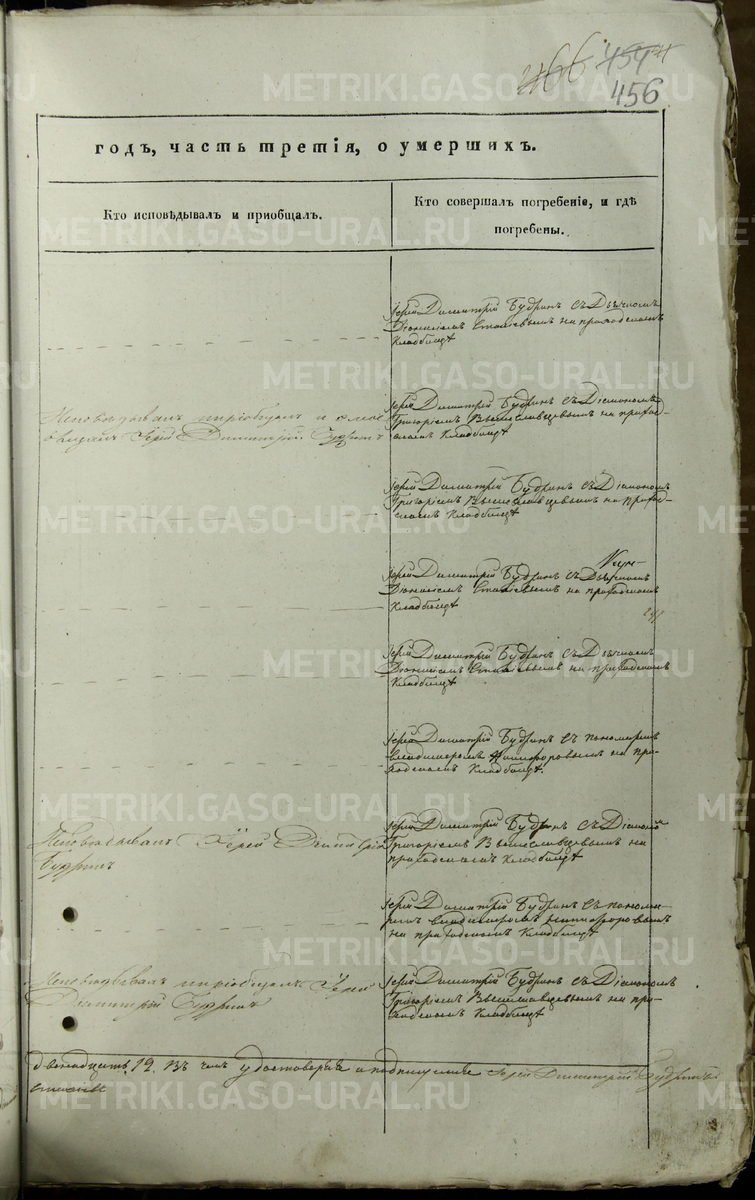 456
годъ, часть третія, о умершихъ.
Кто исповѣдывалъ и приобщалъ.
Кто совершалъ погребеніе, и гдѣ
погребены.
Іерей Димитрій Будринъ съ Дьячкомъ
на приходскомъ
Кладбищѣ
Исповѣдывалъ и приобщалъ
Іерей Димитрій Будринъ
Іерей Димитрій Будринъ съ Діакономъ
Григоріемъ Вышеславцевымъ на приход-
скомъ Кладбищѣ
Іерей Димитрій Будринъ съ Діакономъ
Григоріемъ Вышеславцевымъ на приход-
скомъ Кладбищѣ
Іерей Димитрій Будринъ съ Дьячкомъ
на приходскомъ
Кладбищѣ
Іерей Димитрій Будринъ съ Дьячкомъ
на приходскомъ
Кладбищѣ
Іерей Димитрій Будринъ съ пономаремъ
Владимиромъ Никифоровымъ на при-
ходскомъ Кладбищѣ.
Исповѣдывалъ Іерей Димитрій
Будринъ
Іерей Димитрій Будринъ съ Діакономъ
Григоріемъ Вышеславцевымъ на
приходскомъ Кладбищѣ
Іерей Димитрій Будринъ съ понома-
ремъ Владимиромъ Никифоровымъ
на приходскомъ Кладбищѣ
Исповѣдывалъ и приобщалъ Іерей
Димитрій Будринъ
Іерей Димитрій Будринъ съ Діакономъ
Григоріемъ Вышеславцевымъ на при-
ходскомъ Кладбищѣ
двенадцать 12. Въ чемъ удостоверяя и подписуемся Іерей Димитрій Будринъ
METRIKI.GASO-URAL.RU